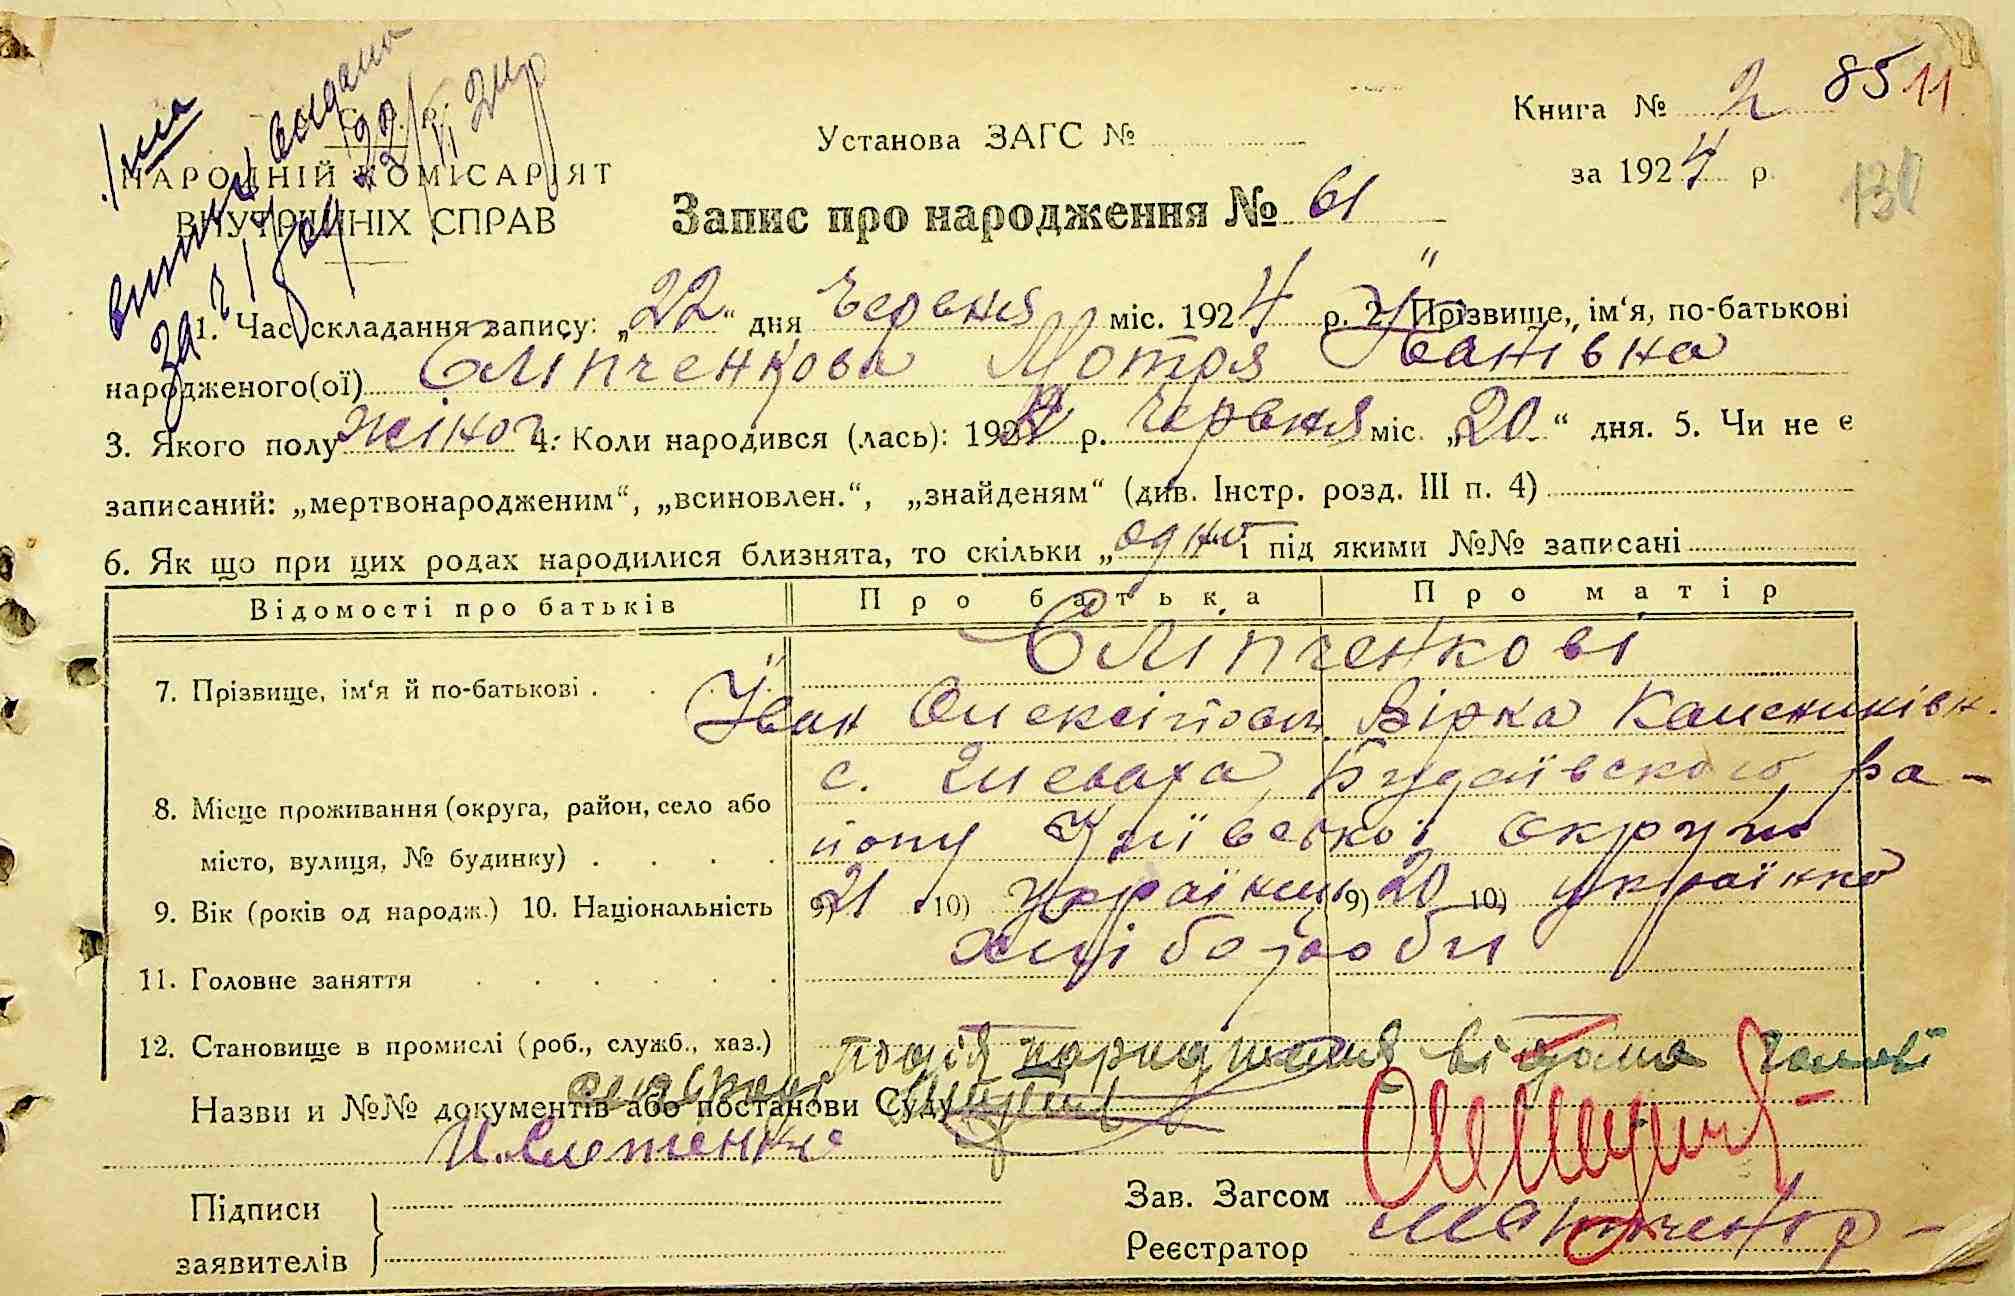 85 11
Книга № 2
Установа ЗАГС №
за 1924 р.
130
НАРОДНІЙ КОМІСАРІЯТ
ВНУТРІШНІХ СПРАВ
Запис про народження № 61
1. Час складання запису: „22“ дня Червня міс. 1924 р. 2. Прізвище, ім‘я, по-батькові
народженого(ої) Сліпченкова Мотря Іванівна
3. Якого полу жіноч. 4. Коли народився (лась): 1924 р. Червня міс. „20“ дня. 5. Чи не є
записаний: „мертвонародженим“, „всиновлен.“, „знайденям“ (див. Інстр. розд. III п. 4)
6. Як що при цих родах народилися близнята, то скільки „одно і під якими №№ записані
Відомості про батьків Про батька Про матір
Сліпченкові
7. Прізвище, ім‘я й по-батькові . Іван Олексійов. Вірка
с. Глеваха Будаївського ра-
8. Місце проживання (округа, район, село або
йону Київської Округи
місто, вулиця, № будинку) .
9. Вік (років од народж.) 10. Національність 9) 21 10) українець 9) 20 10) українка
хлібороби
11. Головне заняття
12. Становище в промислі (роб., служб., хаз.) подія народження відома голові
Назви и №№ документів або постанови Суду
Підписи
заявителів
Зав. Загсом
Реєстратор